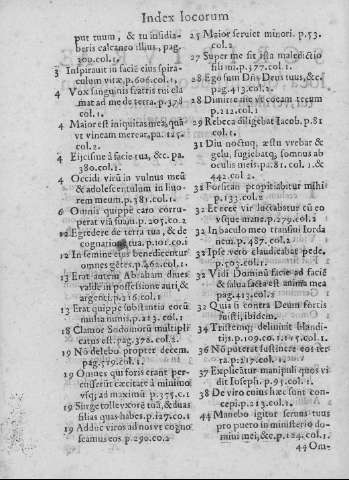 Index locorum
put tuum, & tu insidia-
beris calcaneo illius, pag.
300.col.1.
3 Inspirauit in facie eius spira-
culum vitæ.p.606.col.1,
4 Vox sanguinis fratris tui cla
mat ad me de terra.p.378
col.1.
4 Maior est iniquitas mea, quā
vt veniam merear, pa.125.
col.2.
4 Eijcis me à facie tua, &c. pa.
380.col.1.
4 Occidi virū in vulnus meū
& adolescentulum in liuo-
rem meum.p.381.col.1.
6 Omnis quippe caro corru-
perat viā suā.p.205.co.2
12 Egredere de terra tua, & de
cognatione tua.p.101.co.1
12 In semine tuo benedicentur
omnes gētes.p.461.col.1.
13 Erat autem Abraham diues
valde in possessione auri, &
argenti.p.216.col.1
13 Erat quippe substantia eorū
multa nimis.p.213.col.1.
18 Clamor Sodomorū multipli
catus est.pag.378.col.2.
19 Nō delebo propter decem.
pag.519.col.1.
19 Omnes qui foris erant per-
cusserūt cæcitate à minimo
vsq; ad maximū p.375.c.1
19 Surge tolle vxorē tuā, & duas
filias quas habes.p.127.co.1
19 Adduc viros ad nos vt cogno
scamus eos p.290.co.2
25 Maior seruiet minori. p.53.
col.2.
27 Super me sit ista maledictio
fili mi.p.377.col.1.
28 Ego sum Dñs Deus tuus, &c.
pag.413.col.2.
28 Dimitte me vt eoeam tecum
p.212.col.1
29 Rebeca diligebat Iacob. p.81
col.1.
31 Diu noctuq; æstu vrebar &
gelu, fugiebatq; somnus ab
oculis meis.pa.81. col.1.&
442.col.2.
31 Forsitan propitiabitur mihi
p.133.col.2
32 Et ecce vir luctabatur cū eo
vsque mane.p.279.col.2
32 In baculo meo transiui Iorda
nem.p.487.col.2
32 Ipse vero claudicabat pede.
p.507.col.1.
32 Vidi Dominū facie ad faciē
& salua facta est anima mea
pag.413.col.2
32 Quia si contra Deum fortis
fuisti, ibidem.
34 Tristemq; deliniuit blandi-
tijs.p.109.co.1.&.145.col.1
36 Nō poterat sustinere eos ter-
ra.p.217.col.1.
37 Explicātur manipuli quos vi
dit Ioseph. p.95.col.1.
38 De viro cuius hæc sunt con-
cepi.p.213.col.1.
44 Manebo igitur seruus tuus
pro puero in ministerio do-
mini mei, &c.p.124.col.1.
44 Om-